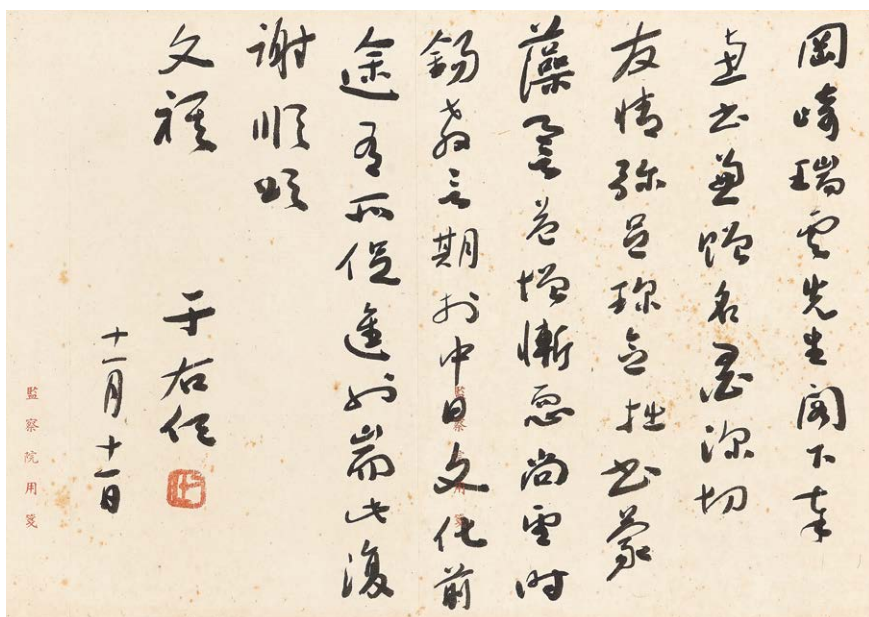 岡崎瑞雲先生閣下奉
惠書並贈名墨深切
友情弥足珍念拙書蒙
藻墨益增慚恧尚望时
錫教言期於中日文化前
途有所促進也耑此復
謝順頌
文祺
于右任
十一月十一日
監察院用箋
監察院用箋